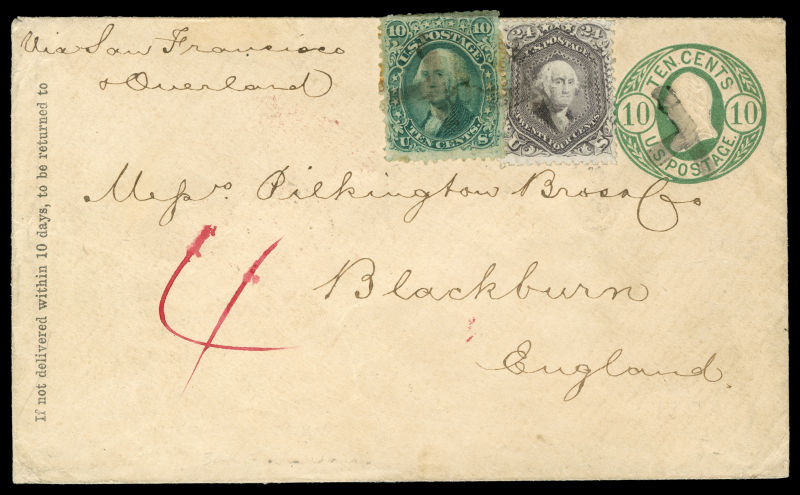 Via San Francisco
& Overland
If not delivered within 10 days, to be returned to
10 10
U.S. POSTAGE
U TEN CENTS S
24 24
U.S. POSTAGE
U TWENTY FOUR CENTS S
TEN CENTS
10 10
U.S. POSTAGE.
Messrs Pilkington Bros & Co
4
Blackburn
England.